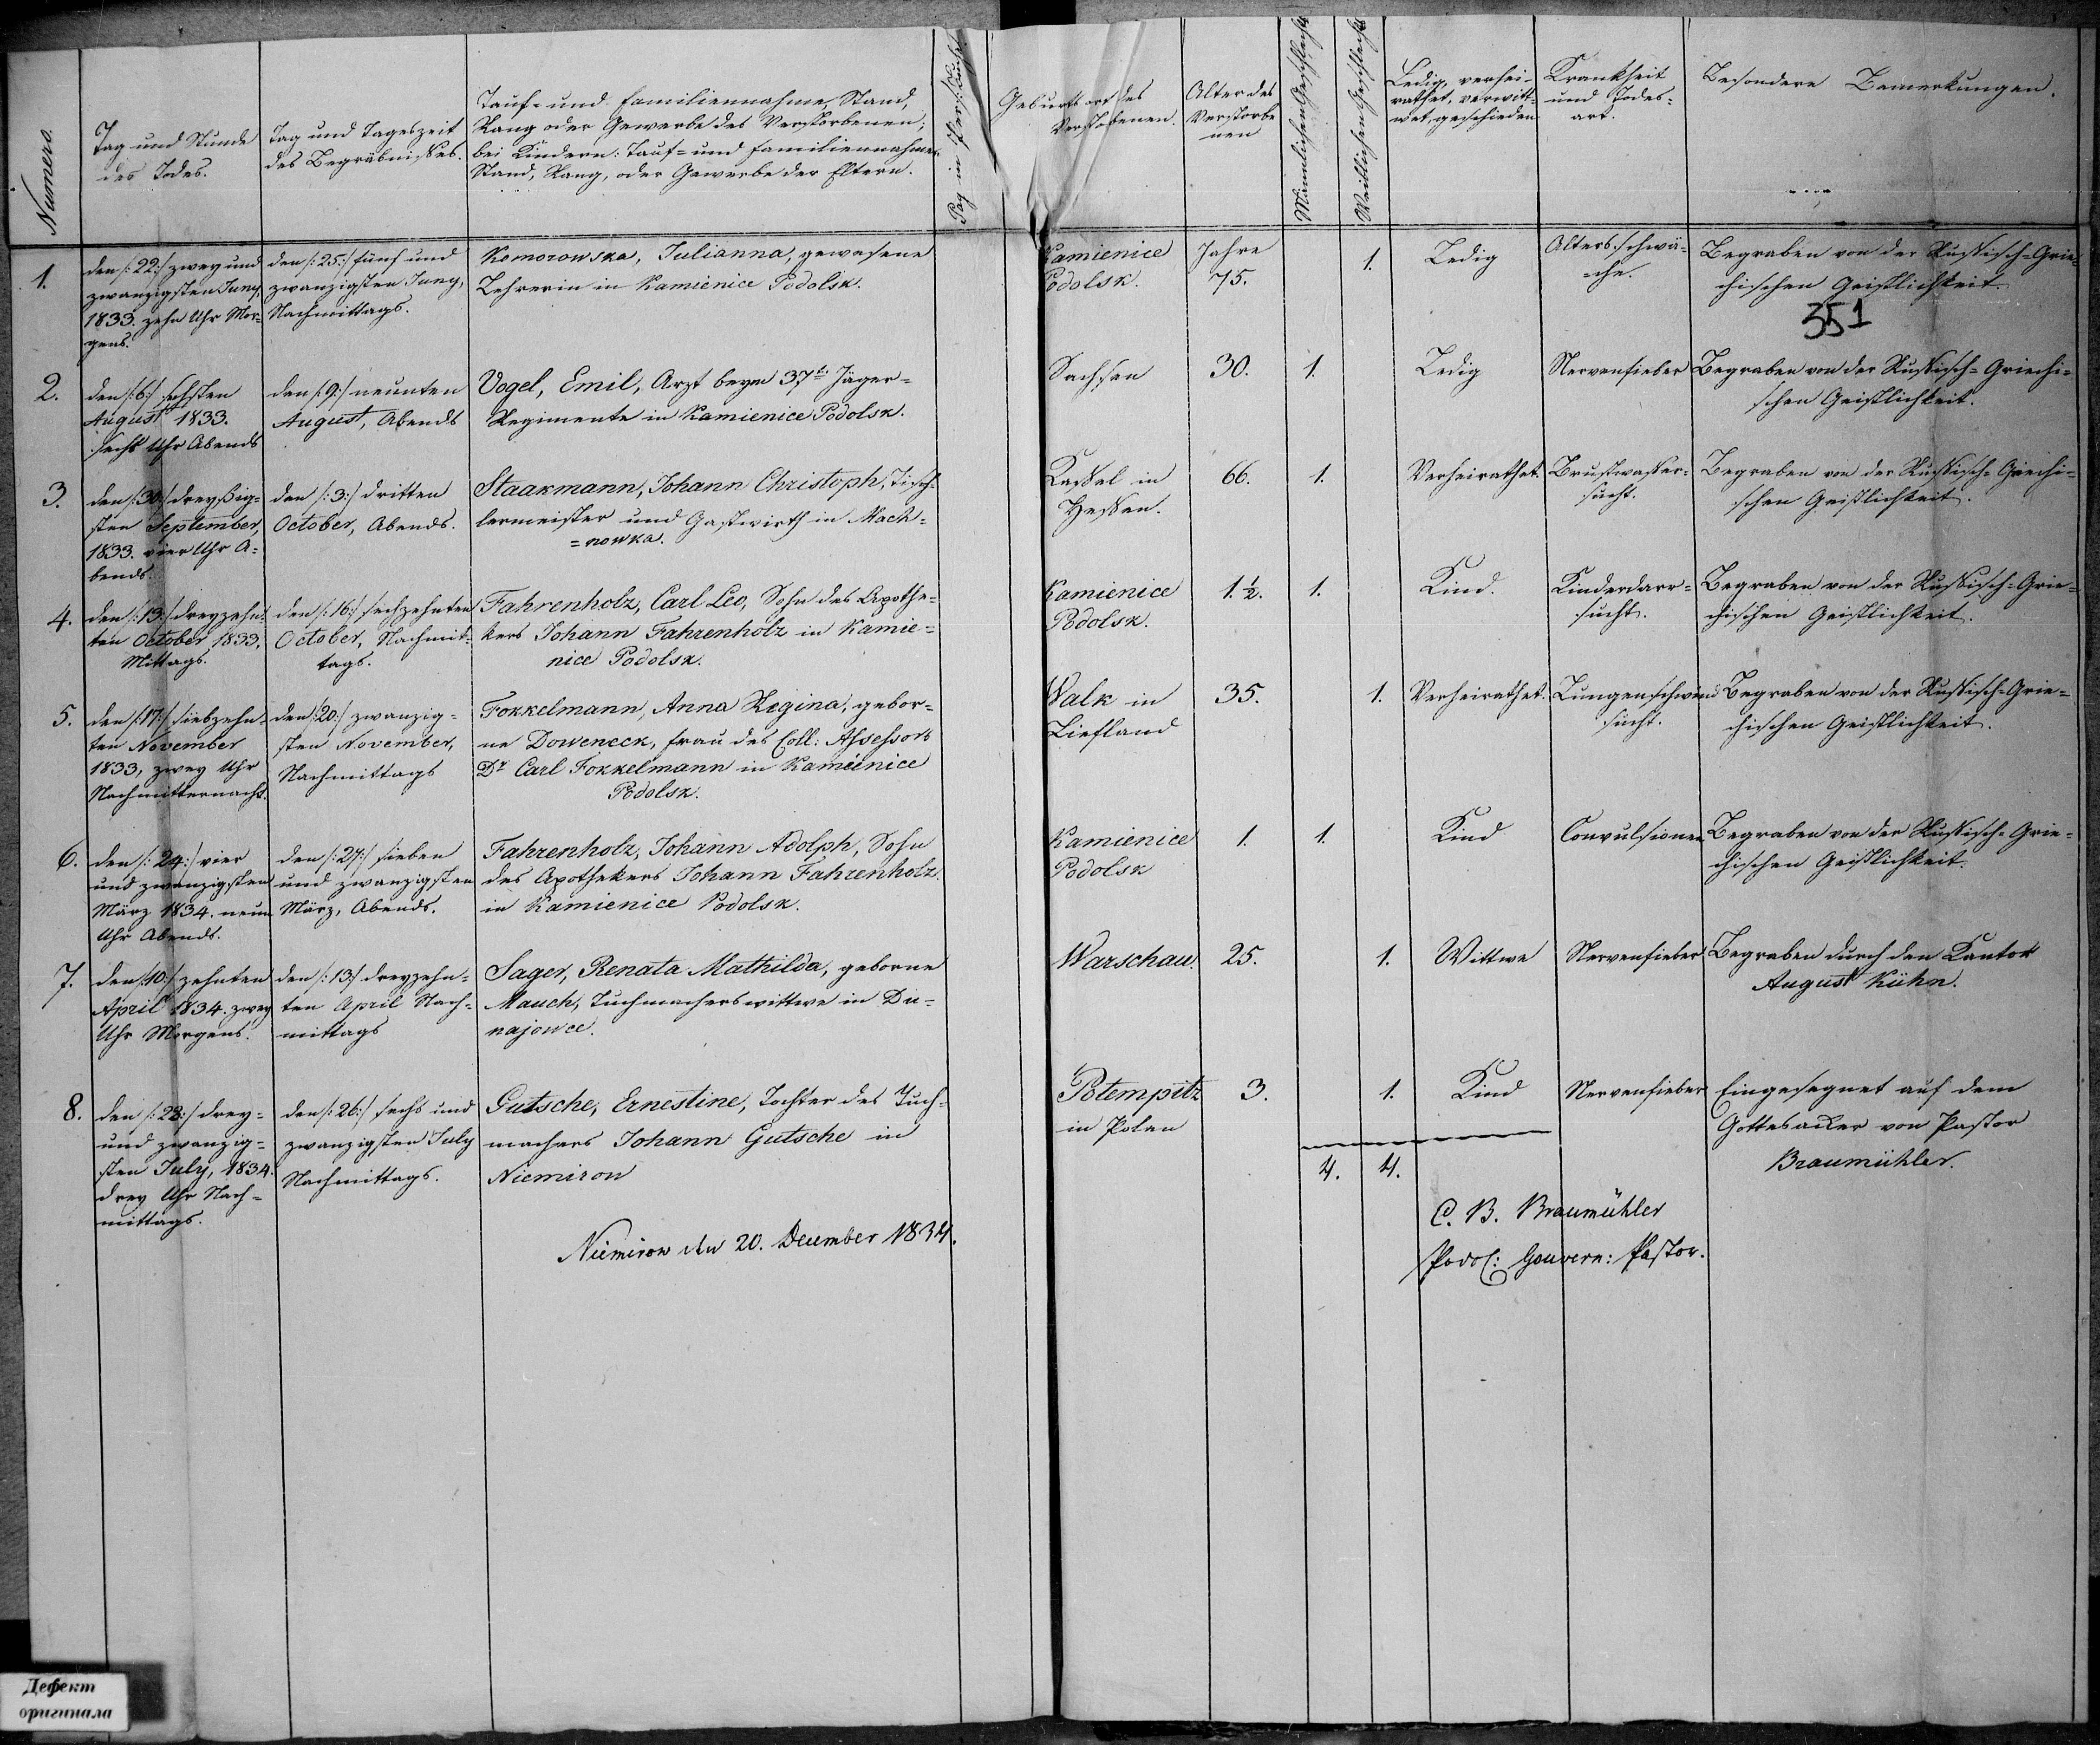 Numero.
Tag und Stunde
des Todes.
Tag und Tageszeit
des Begräbnißes.
Tauf- und Familiennahme, Stand,
Rang oder Gewerbe des Verstorbenen;
bei Kindern: Tauf- und Familiennahme
Stand, Rang, oder Gewerbe der Eltern.
Pag in Pers: Buch.
Geburtsort des
Verstorbenen.
Alter des
Verstorbe
nen
Männlichen Geschlechts
Weiblichen Geschlechts
Ledig, verhei-
rathet, verwitt-
wet, geschieden
Krankheit
und Todes-
art.
Besondere Bemerkungen.
1.
den /:22:/ zwey und
zwanzigsten Juny,
1833. zehn Uhr Mor-
gens.
den /:25:/ fünf und
zwanzigsten Juny,
Nachmittags.
Komorowska, Julianna, gewesene
Lehrerin in Kamienice Podolsk.
Kamienice
Podolsk.
Jahre
75.
1.
Ledig
Altersschwä-
-che.
Begraben von der Russisch-Grie-
chischen Geistlichkeit.
351
2.
den /:6:/ sechsten
August 1833.
sechs Uhr Abends
den /:9:/ neunten
August, Abends
Vogel, Emil, Arzt beym 37t. Jäger-
Regimente in Kamienice Podolsk.
Sachsen
30.
1.
Ledig
Nervenfieber
Begraben von der Russisch-Griechi-
schen Geistlichkeit.
3.
den /:30:/ dreyßig-
sten September,
1833. vier Uhr A-
bends.
den /:3:/ dritten
October, Abends.
Staakmann, Johann Christoph, Tisch-
lermeister und Gastwirth in Mach-
=nowka.
Kassel in
Hessen.
66.
1.
Verheirathet.
Brustwasser-
sucht.
Begraben von der Russisch-Griechi-
schen Geistlichkeit.
4.
den /:13:/ dreyzehn-
ten October 1833,
Mittags.
den /:16:/ sechzehnten
October, Nachmit-
tags.
Fahrenholz, Carl Leo, Sohn des Apothe-
kers Johann Fahrenholz in Kamie-
nice Podolsk.
Kamienice
Podolsk.
1.½.
1.
Kind.
Kinderdarr-
sucht.
Begraben von der Russisch-Grie-
chischen Geistlichkeit.
5.
den /:17:/ siebzehn-
ten November
1833, zwey Uhr
Nachmitternacht.
den /:20:/ zwanzig-
sten November,
Nachmittags
Fokkelmann, Anna Regina, gebor-
ne Doweneck, Frau des Coll: Assessors
Dr Carl Fokkelmann in Kamienice
Podolsk.
Walk in
Liefland
35.
1.
Verheirathet.
Lungenschwind
sucht.
Begraben von der Russisch-Grie-
chischen Geistlichkeit.
6.
den /:24:/ vier
und zwanzigsten
März 1834. neun
Uhr Abends.
den /:27:/ sieben
und zwanzigsten
März, Abends.
Fahrenholz, Johann Adolph, Sohn
des Apothekers Johann Fahrenholz
in Kamienice Podolsk.
Kamienice
Podolsk
1.
1.
Kind
Convulsionen
Begraben von der Russisch-Grie-
chischen Geistlichkeit.
7.
den /:10:/ zehnten
April 1834. zwey
Uhr Morgens.
den /:13:/ dreyzehn-
ten April Nach-
mittags
Sager, Renata Mathilda, geborne
Mauch, Tuchmacherswittwe in Du-
najowce.
Warschau.
25.
1.
Wittwe
Nervenfieber
Begraben durch den Kantor
August Kühn.
8.
den /:23:/ drey-
und zwanzig-
sten July, 1834.
drey Uhr Nach-
mittags.
den /:26:/ sechs und
zwanzigsten July
Nachmittags.
Gutsche, Ernestine, Tochter des Tuch-
machers Johann Gutsche in
Niemirow
Potempitz
in Polen
3.
1.
Kind
Nervenfieber
Eingesegnet auf dem
Gottesacker von Pastor
Braumühler.
4.
4.
Niemirow den 20. December 1834.
C. B. Braumühler
Podol: Gouvern: Pastor.
Дефект
оригинала